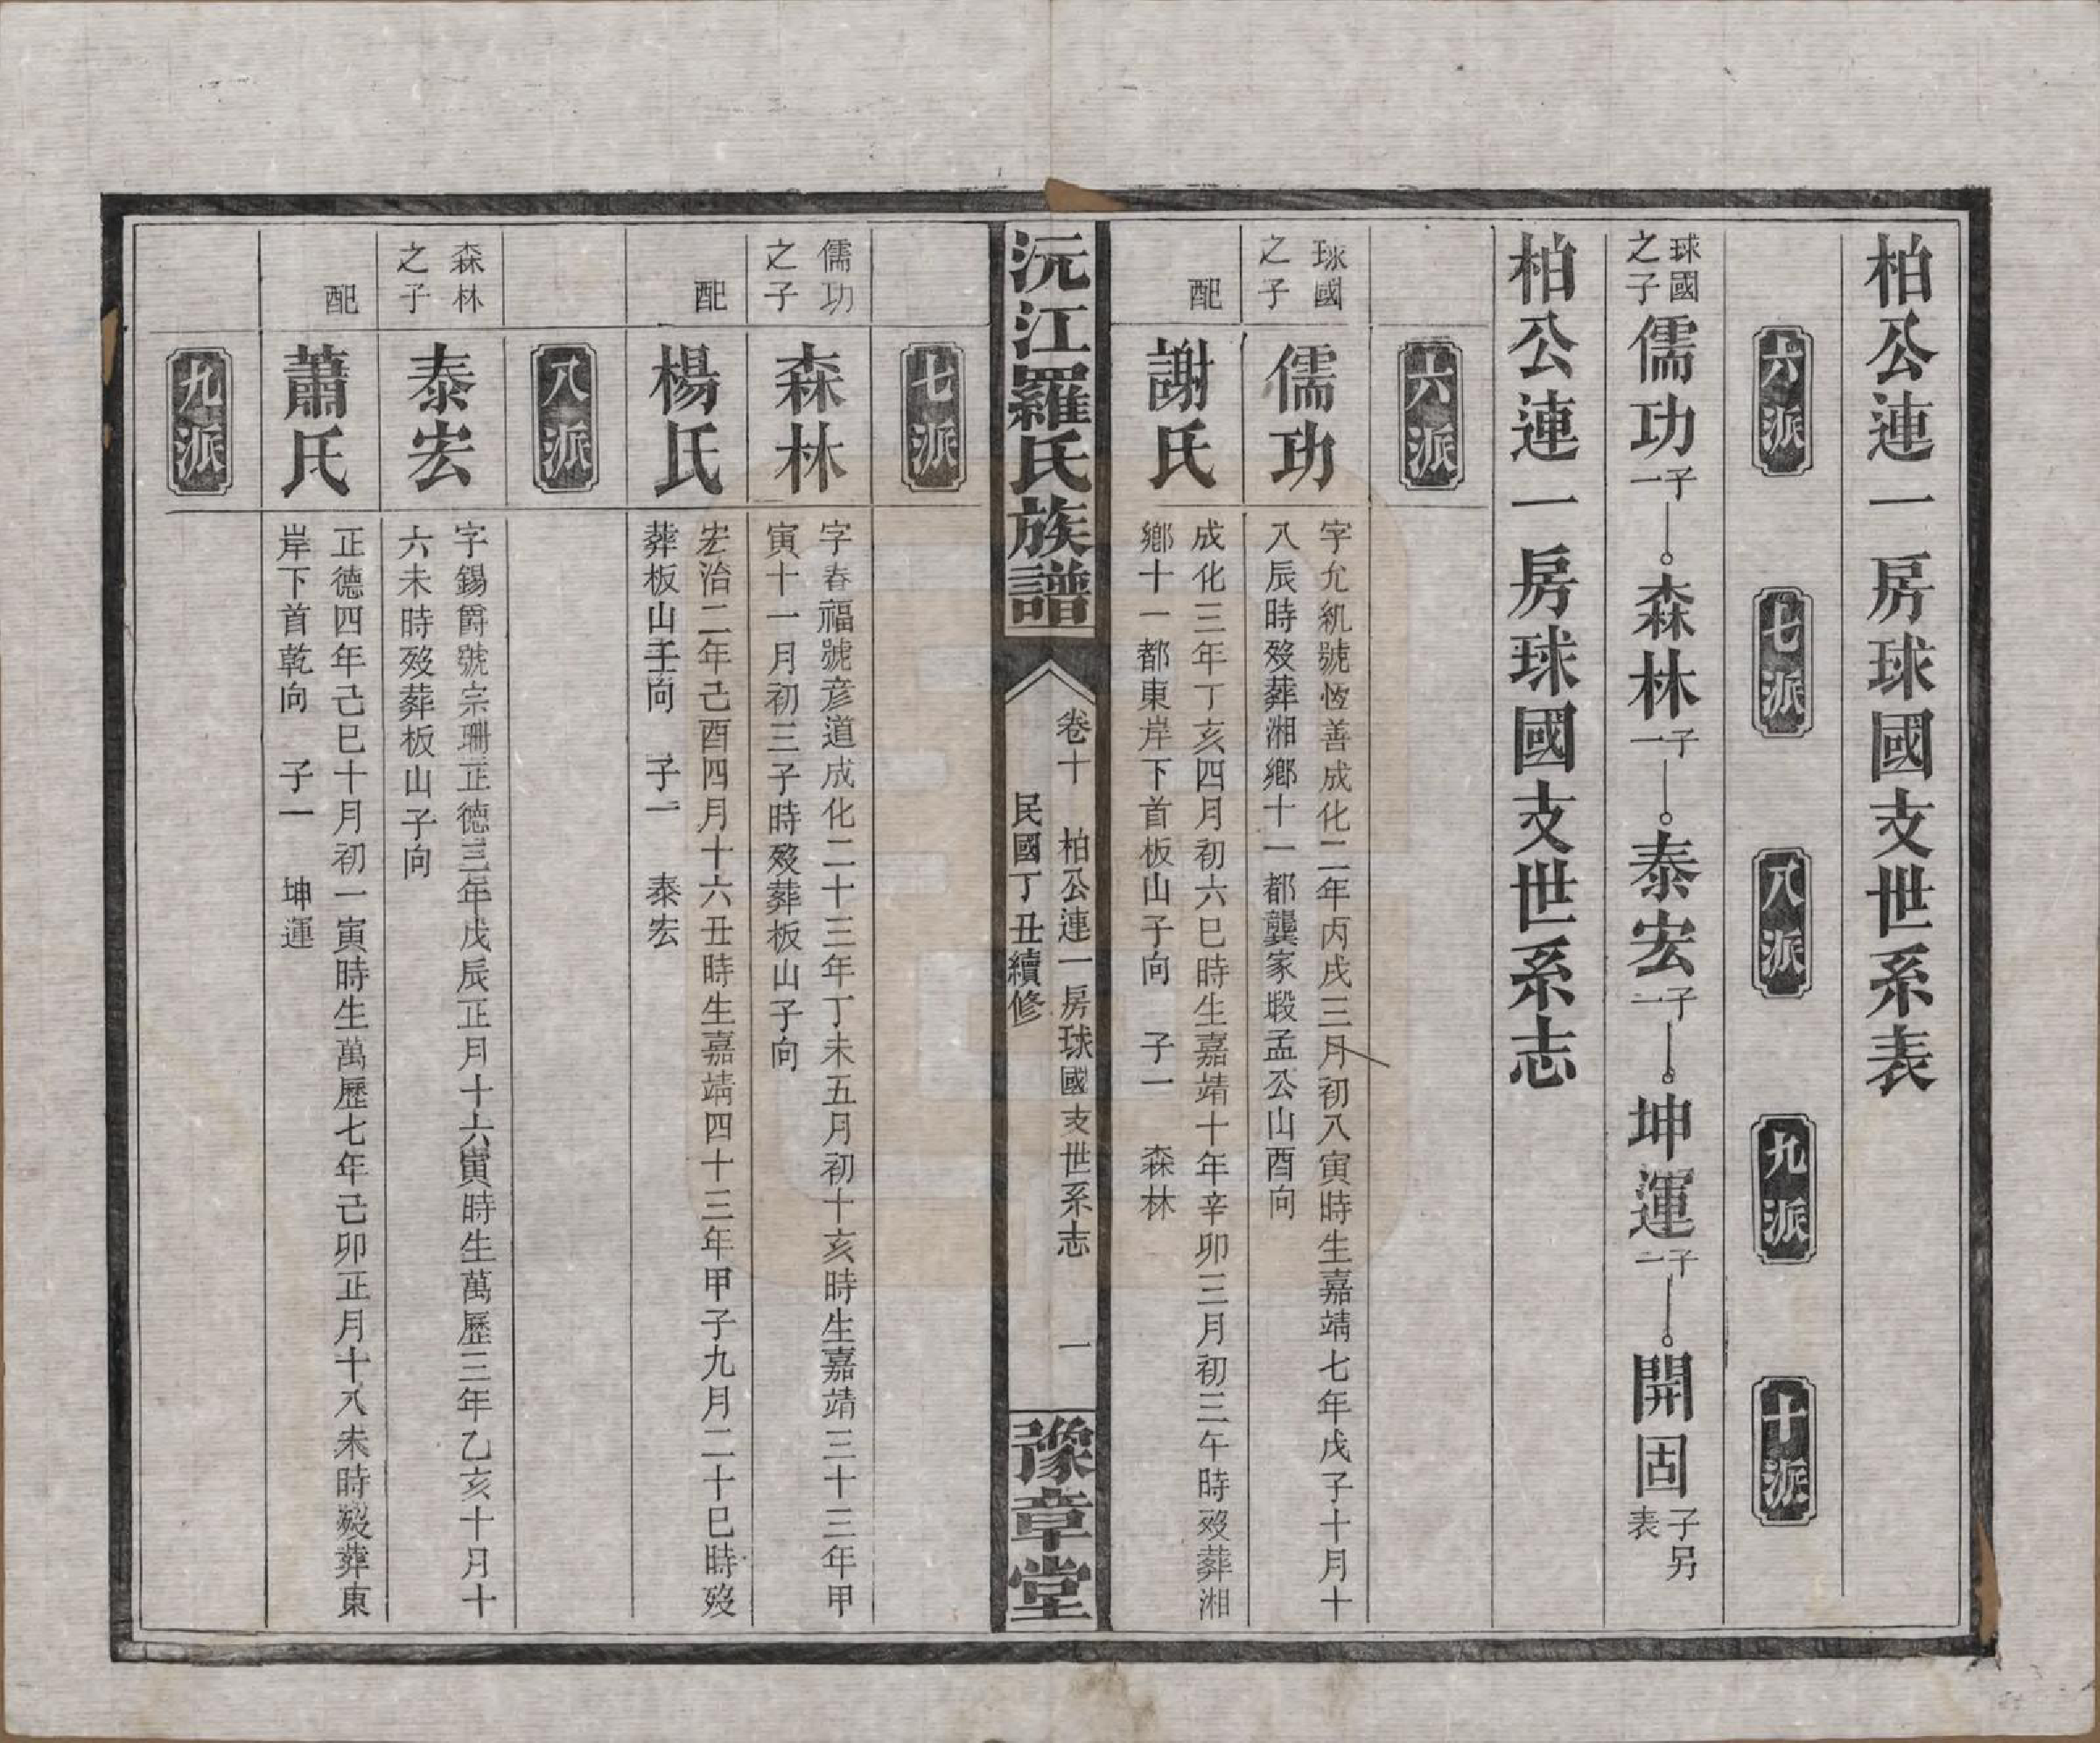 柏公連一房球國支世系表
六派 七派 八派 九派 十派
球國之子 儒功 子一 森林 子一 泰宏 子一 坤運 子二 開固 子另表
柏公連一房球國支世系志
六派
球國之子 儒功 字允紈號恆善成化二年丙戌三月初八寅時生嘉靖七年戊子十月十
八辰時歿葬湘鄉十一都龔家塅孟公山酉向
配 謝氏 成化三年丁亥四月初六巳時生嘉靖十年辛卯三月初三午時歿葬湘
鄉十一都東岸下首板山子向 子一 森林
沅江羅氏族譜 卷十 柏公連一房球國支世系志 一 豫章堂
民國丁丑續修
七派
儒功之子 森林 字春福號彦道成化二十三年丁未五月初十亥時生嘉靖三十三年甲
寅十一月初三子時歿葬板山子向
配 楊氏 宏治二年己酉四月十六丑時生嘉靖四十三年甲子九月二十巳時歿
葬板山壬向 子一 泰宏
八派
森林之子 泰宏 字錫爵號宗珊正德三年戊辰正月十六寅時生萬歷三年乙亥十月十
六未時歿葬板山子向
配 蕭氏 正德四年己巳十月初一寅時生萬歷七年己卯正月十八未時歿葬東
岸下首乾向 子一 坤運
九派